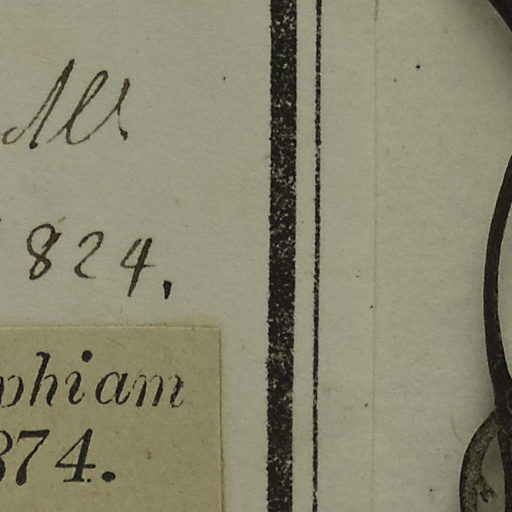 824.
phiam
874.